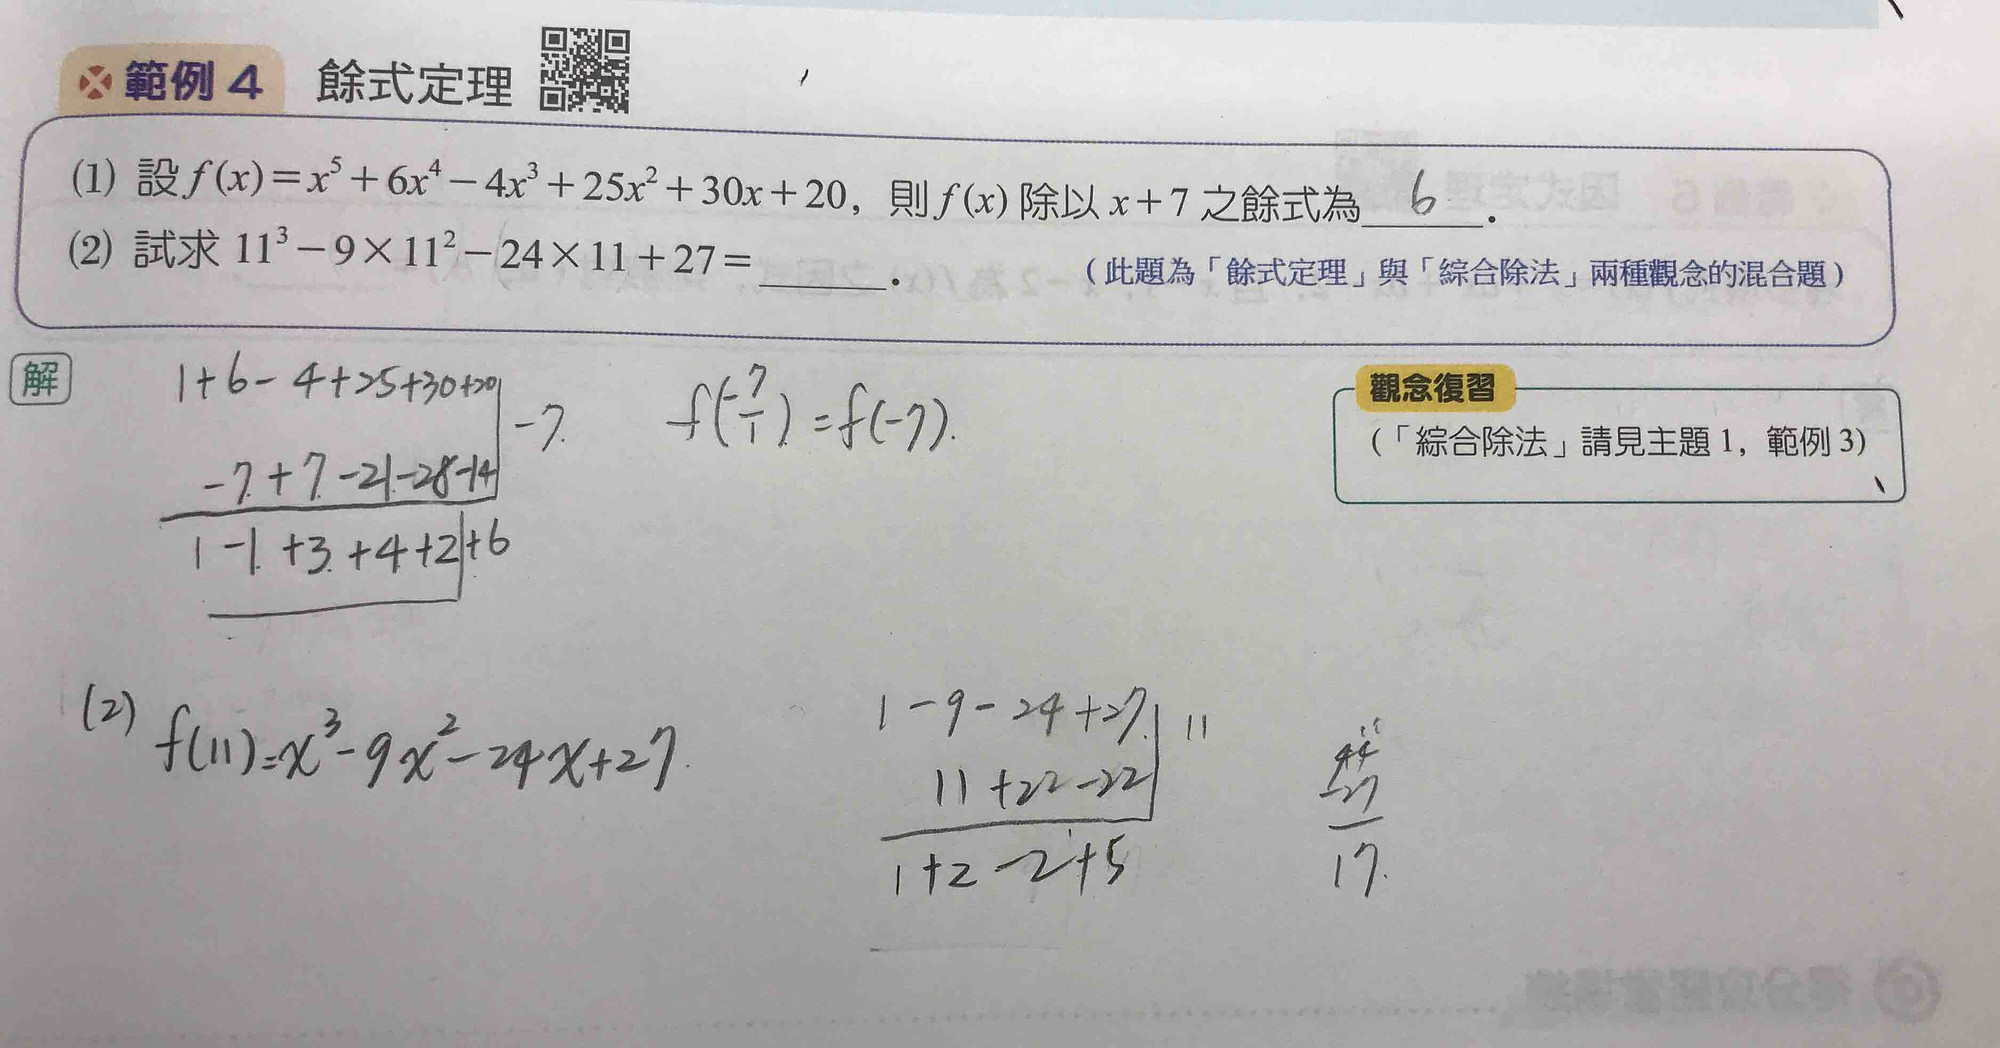 範例 4 餘式定理
(1) 設 f(x)=x⁵+6x⁴−4x³+25x²+30x+20，則 f(x) 除以 x+7 之餘式為 6 .
(2) 試求 11³−9×11²−24×11+27=______.
(此題為「餘式定理」與「綜合除法」兩種觀念的混合題)
解
1+6-4+25+30+20 -7.
-7+7-21-28-14
1-1+3+4+2+6
f(-7/1)=f(-7).
觀念復習
(「綜合除法」請見主題 1，範例 3)
(2) f(11)=x³-9x²-24x+27.
1-9-24+27 11
11+22-22
1+2-2+5
44
-27
17.